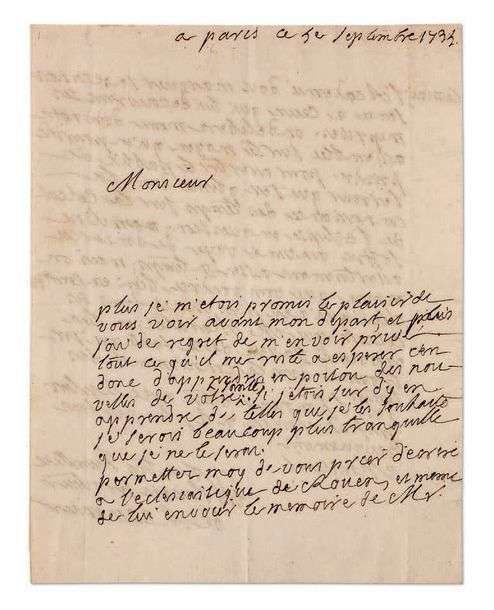 a paris ce 5e septembre 1734.
Monsieur
plus je m'etois promis le plaisir de
vous voir avant mon depart, et plus
j'ay de regret de m'en voir privé
tout ce qu'il me reste a esperer c'en
donc d'apprendre en poitou des nou-
velles de votre santé. si j'etois sur d'y en
apprendre de telles que je les souhaite
je serois beaucoup plus tranquille
que je ne le serai.
permettez moy de vous prier d'ecrire
a l'eclesiastique de Rouen, et meme
de lui envoier le memoire de Mr.